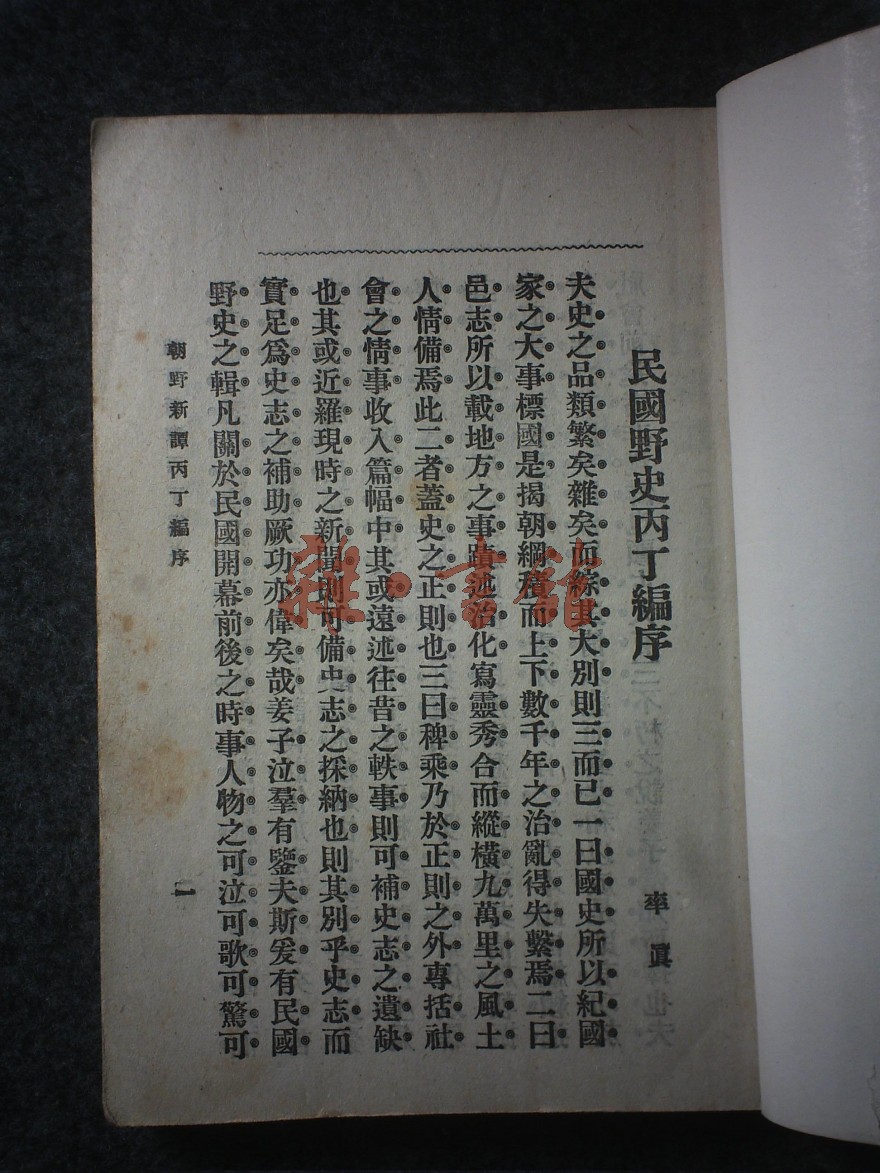 民國野史丙丁編序
率真
夫史之品類繁矣雜矣而綜其大別則三而已一曰國史所以紀國
家之大事標國是揭朝綱積而上下數千年之治亂得失繫焉二曰
邑志所以載地方之事蹟述治化寫靈秀合而縱橫九萬里之風土
人情備焉此二者蓋史之正則也三曰稗乘乃於正則之外專括社
會之情事收入篇幅中其或遠述往昔之軼事則可補史志之遺缺
也其或近羅現時之新聞則可備史志之採納也則其別乎史志而
實足爲史志之補助厥功亦偉矣哉姜子泣羣有鑒夫斯爰有民國
野史之輯凡關於民國開幕前後之時事人物之可泣可歌可驚可
朝野新譚丙丁編序
一
雜·書館